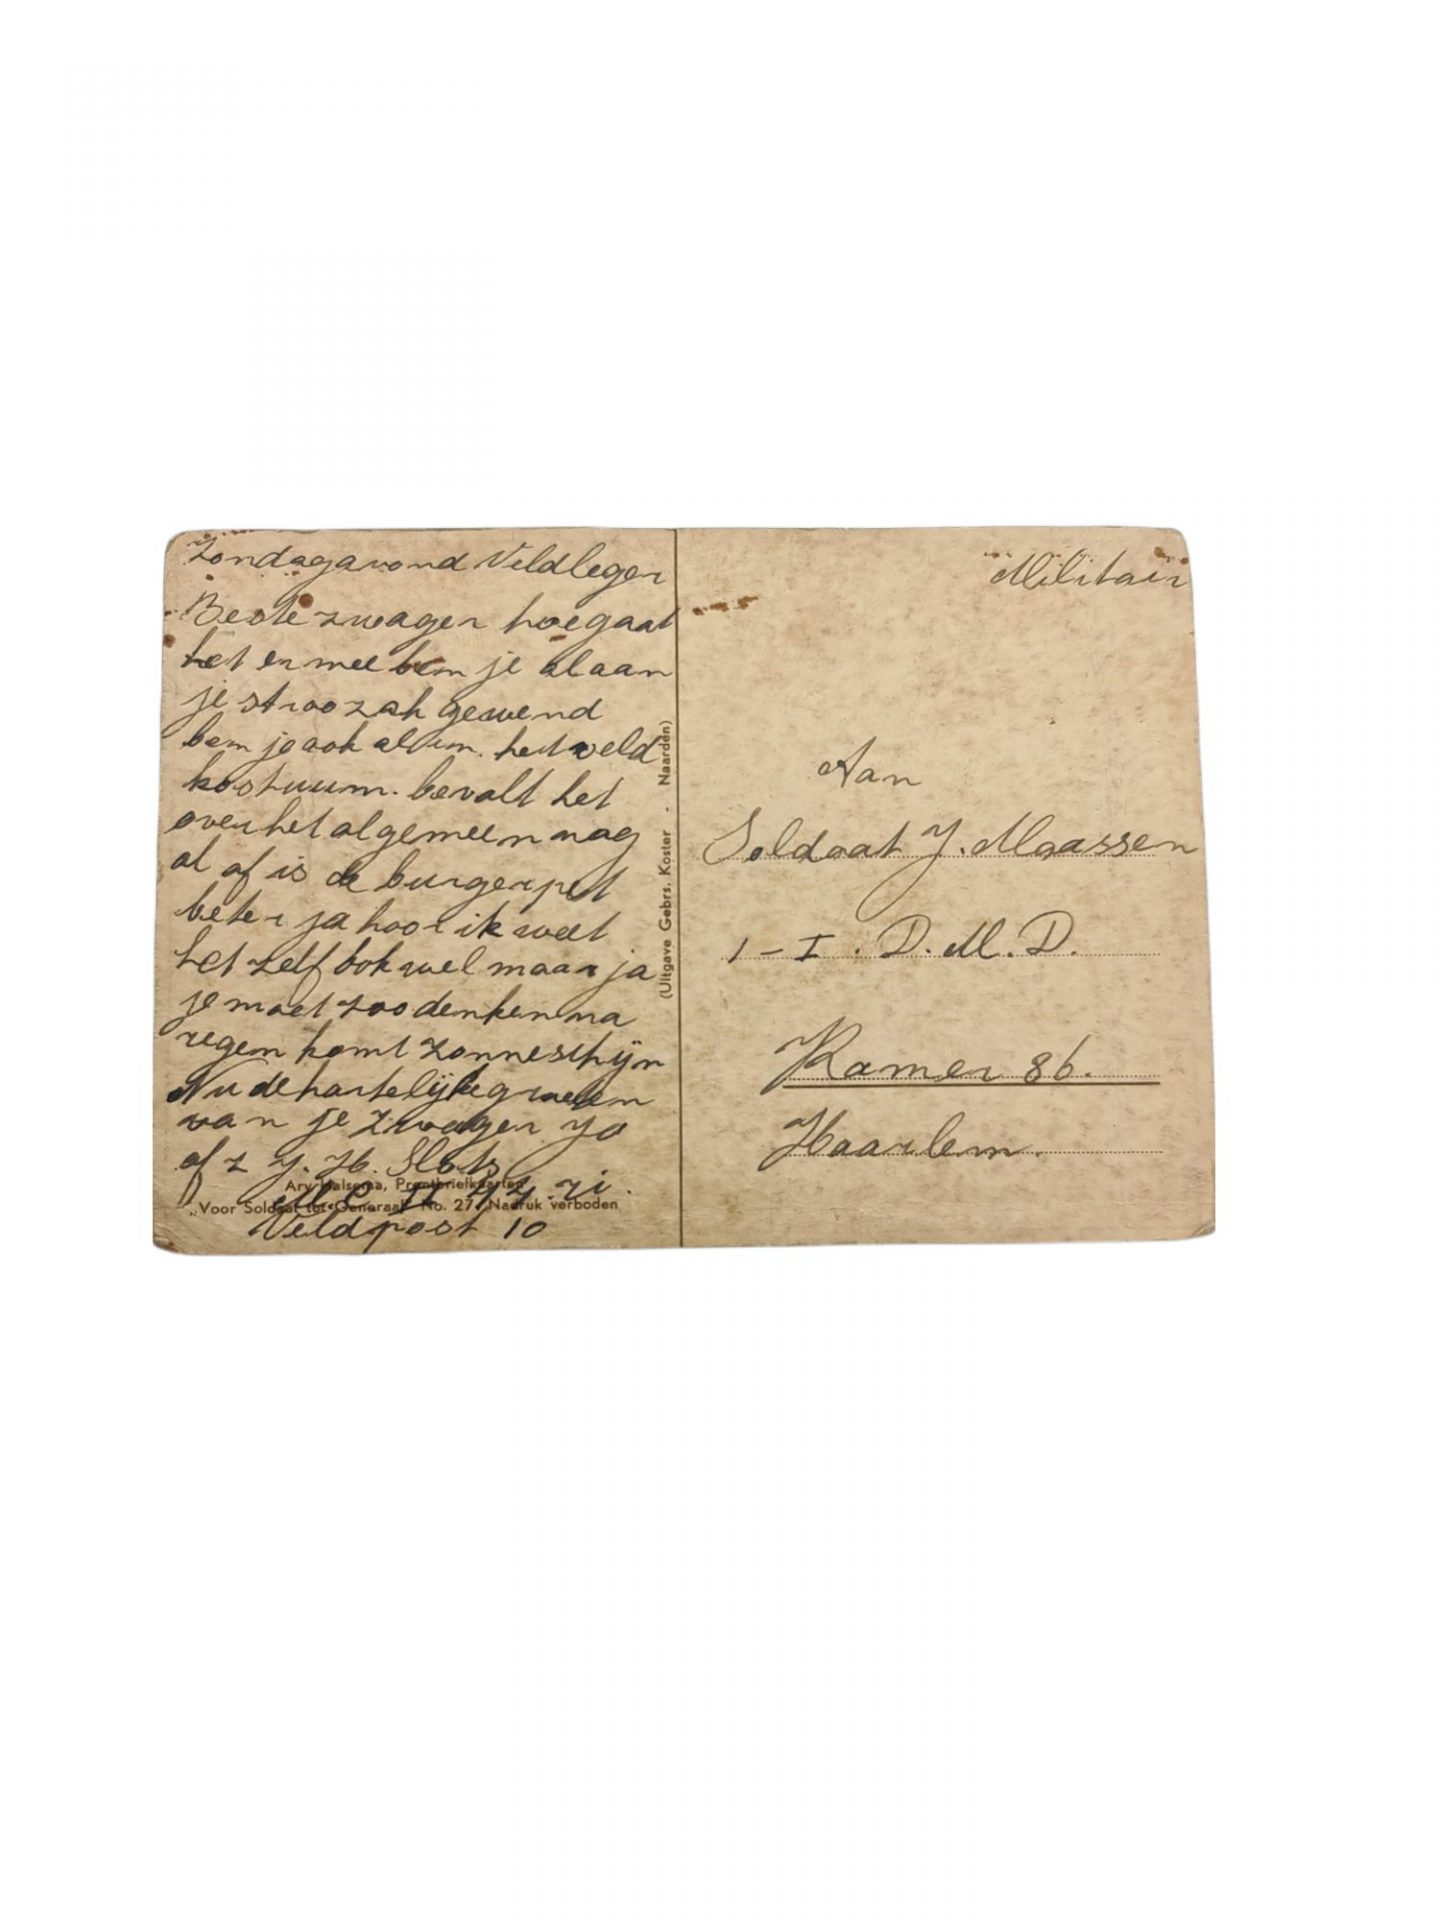 Zondagavond Veldleger
Beste zwager hoegaat
het er mee ben je al aan
je stroozak gewend
ben je ook al in het veld
kostuum. bevalt het
over het algemeen nog
al of is de burgerpet
beter ja hoor ik weet
het zelf ook wel maar ja
je moet zoo denken na
regen komt zonneschijn
Nu de hartelijke groeten
van je zwager Jo
afz J. H. Slots
M C II 44. R.I.
Veldpost 10
Ary Halsema, Prentbriefkaarten
„Voor Soldaat tot Generaal" No. 27. Nadruk verboden
(Uitgave Gebrs. Koster . Naarden)
Militair
Aan
Soldaat J. Maassen
1-I. D.M.D.
Kamer 86.
Haarlem.